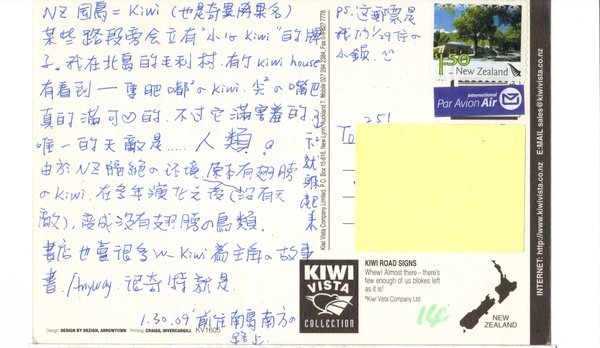 NZ 國鳥 = Kiwi (也是奇異果果名)
某些路段旁會立有"小心 Kiwi"的牌
子。我在北島的毛利村,有个 Kiwi house
有看到一隻肥嘟的 Kiwi. 尖的嘴巴
真的滿可♡的。不过它滿害羞的.
一下就躲起來
唯一的天敵是..... 人類。
由於NZ隔絕的环境,原本有翅膀
的 Kiwi. 在多年演化之後 (沒有天
敵), 变成沒有翅膀的鳥類.
書店也賣很多以 Kiwi 為主角的故事
書. Anyway. 很奇特就是.
1.30.09' 前往南島南方の
路上.
PS. 這郵票是
我的 1/29住の
小鎮. :)
1.50
New Zealand
International
Par Avion Air
251
To
Kiwi Vista Company Limited, P.O. Box 15-818, New Lynn, Auckland 7. Mobile 021 294 2381. Fax 0-9-827 7778
KIWI
VISTA
COLLECTION
KIWI ROAD SIGNS
Whew! Almost there – there's
few enough of us blokes left
as it is!
©Kiwi Vista Company Ltd
14
NEW
ZEALAND
INTERNET: http://www.kiwivista.co.nz E:MAIL sales@kiwivista.co.nz
Design DESIGN BY GEZIGH, ARROWTOWN Printing CRAIGS, INVERCARGILL KV1605